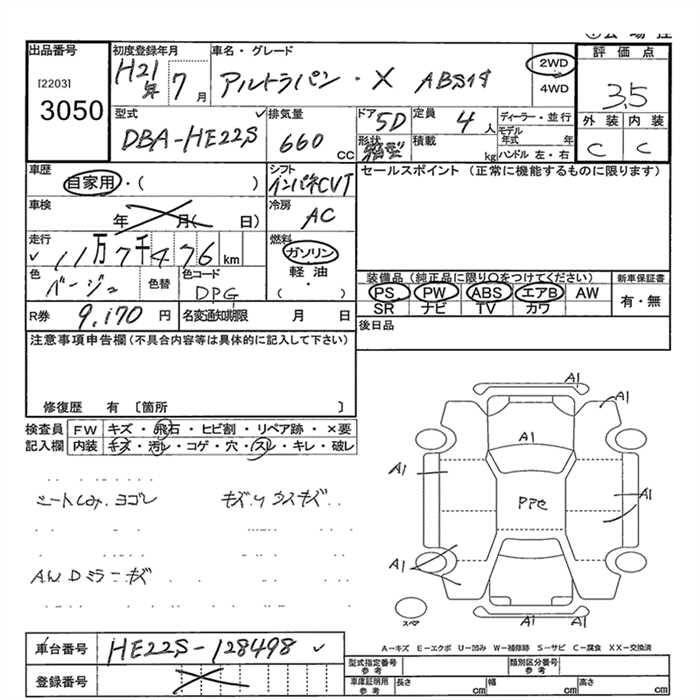 出品番号 初度登録年月 車名・グレード 評価点
[2203] 3050 H21年 7月 アルトラパン・X ABS付 2WD 4WD 3.5
外装 内装
C C
型式 排気量 ドア 定員 ディーラー・並行
DBA-HE22S 660 CC 5D 4人 モデル年式 年
形状 積載 kg ハンドル 左・右
車歴 シフト セールスポイント (正常に機能するものに限ります)
自家用・( ) インパネCVT
車検 冷房
年 月( 日) AC
走行 燃料
11万7千476km ガソリン
軽油
・( )
色 色替 色コード
ベージュ DPG
装備品 (純正品に限り○をつけてください) 新車保証書
PS PW ABS エアB AW 有・無
SR ナビ TV カワ
R券 9,170円 名変通知期限 月 日
後日品
注意事項申告欄(不具合内容等は具体的に記入して下さい)
修復歴 有 [箇所 ]
検査員 FW キズ・飛石・ヒビ割・リペア跡・×要
記入欄 内装 キズ・汚レ・コゲ・穴・スレ・キレ・破レ
シートしみ、ヨゴレ キズ、ウスキズ
AW Dミラーキズ
A1
A1
A1
A1
A1
A1
A1
スペア
A-キズ E-エクボ U-凹み W-補修跡 S-サビ C-腐食 XX-交換済
車台番号 HE22S-128498
登録番号
型式指定番号 参考 類別区分番号 参考
車庫証明用 参考 長さ cm 幅 cm 高さ cm